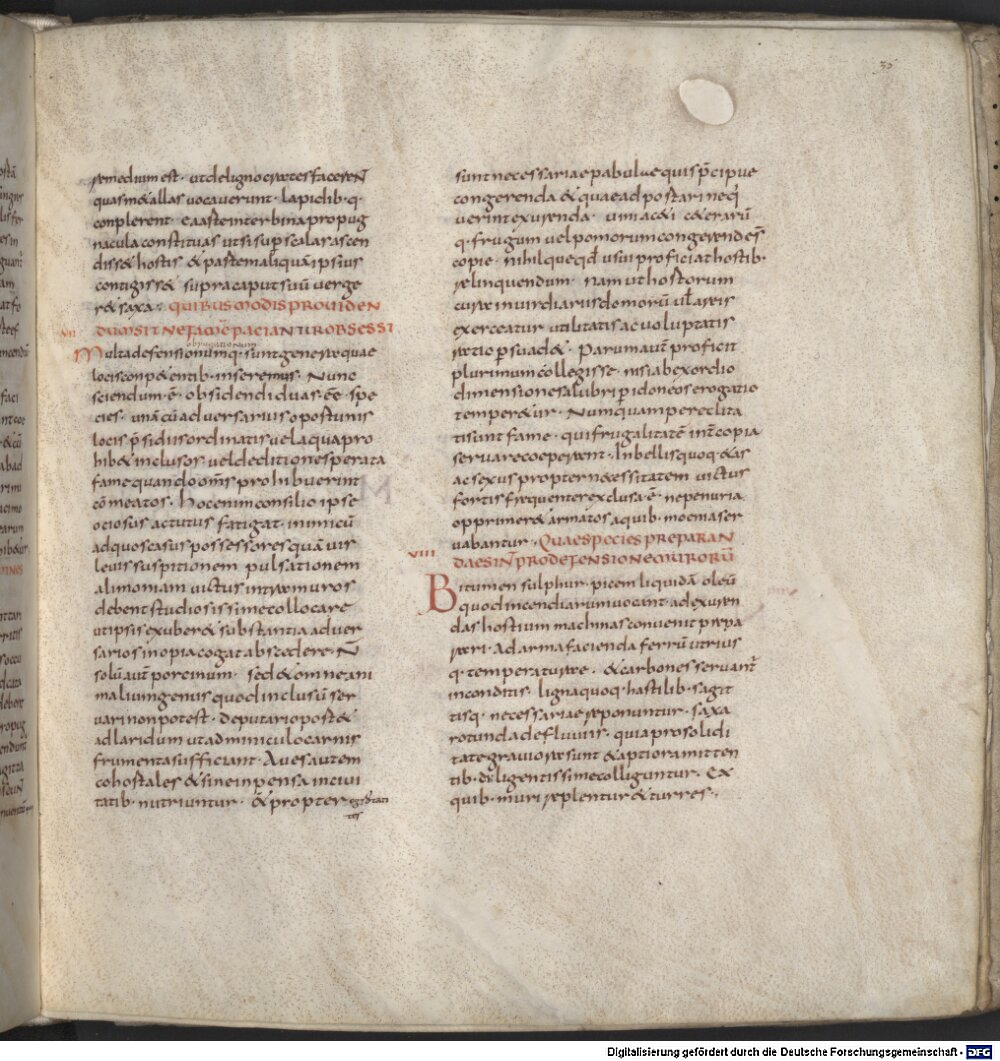 35
remedium est · ut de ligno crates facereñ
quas metallas vocaverunt · lapidib · q·
complerent · ea aste inter bina propug
nacula constituas ut si sup scalar ascen
disset hostis · et partem aliquā ipsius
contigisset supra caput suū verge
ret saxa · QUIBUS MODIS PROVIDEN
VII DUM SIT NE FAMEM PACIANTUR OBSESSI
obpugnationum
Multa defensionumq · sunt genera quae
locis conpetentib · inseremus · Nunc
sciendum · ē · obsidendi duas · eē · spe
cies · unā cū adversarius opostunis
locis p̄sidiis ordinatis vel aqua pro
hibet inclusor · vel deditione sperata
fame quando om̄s prohibuerint
cōmeatos · hoc enim consilio ipse
ociosus ac tutus fatigat · inimicū
ad quos casus possessores quā vis
levis suspitionem pulsationem
alimoniam victus intra muros
debent studiosissime collocare
ut ipsis exuberet substantia adver
sarios inopia cogat abscedere · N̄
solū aut̄ porcinum · sed et omne ani
malium genus quod inclusū ser
vari non potest · deputari oportet
ad laridum ut adminiculo carnis
frumenta sufficiant · Aves autem
cohostales et sine inpensa in civi
tatib · nutriuntur · et propter egrotan
tes
sunt necessariae pabula equis p̄cipue
congerenda et quae adpostari neq·
verint exurenda · vini aceti ceterarū
q · frugum vel pomorum congerendes̄
copie · nihilque qd̄ usui proficiat hostib·
relinquendum · nam ut hostorum
cure in virdiariis domorū vl̄ areis
exerceatur utilitatis ac voluptatis
ratio psuadet · Parum aut̄ proficit
plurimum collegisse · nisi ab exordio
dimensione salubri p idoneos erogatio
temperetur · Numquam pereclita
ti sunt fame · qui frugalitatē int̄ copia
servare coeperunt · Inbellis quoq · etas
ac sexus propter necessitatem victus
fortis frequenter exclusa · ē · ne penuria
opprimeret armatos a quib · moenia ser
vabantur · QUAE SPECIES PREPARAN
VIII DAE SINT̄ PRO DEFENSIONE MURORŪ
Bitumen sulphur · picem liquidā oleū
quod incendiarum vocant · ad exuren
das hostium machinas convenit prepa
rari · Ad arma facienda ferrū utrius
q · temperaturae · et carbones servant̄
in conditis · lignaquoq · hastilib · sagit
tisq · necessariae reponuntur · saxa
rotunda de fluviis · quia pro solidi
tate graviora sunt et aptiora mitten
tib · diligentissime colliguntur · Ex
quib · muri replentur et turres ·
Digitalisierung gefördert durch die Deutsche Forschungsgemeinschaft - DFG